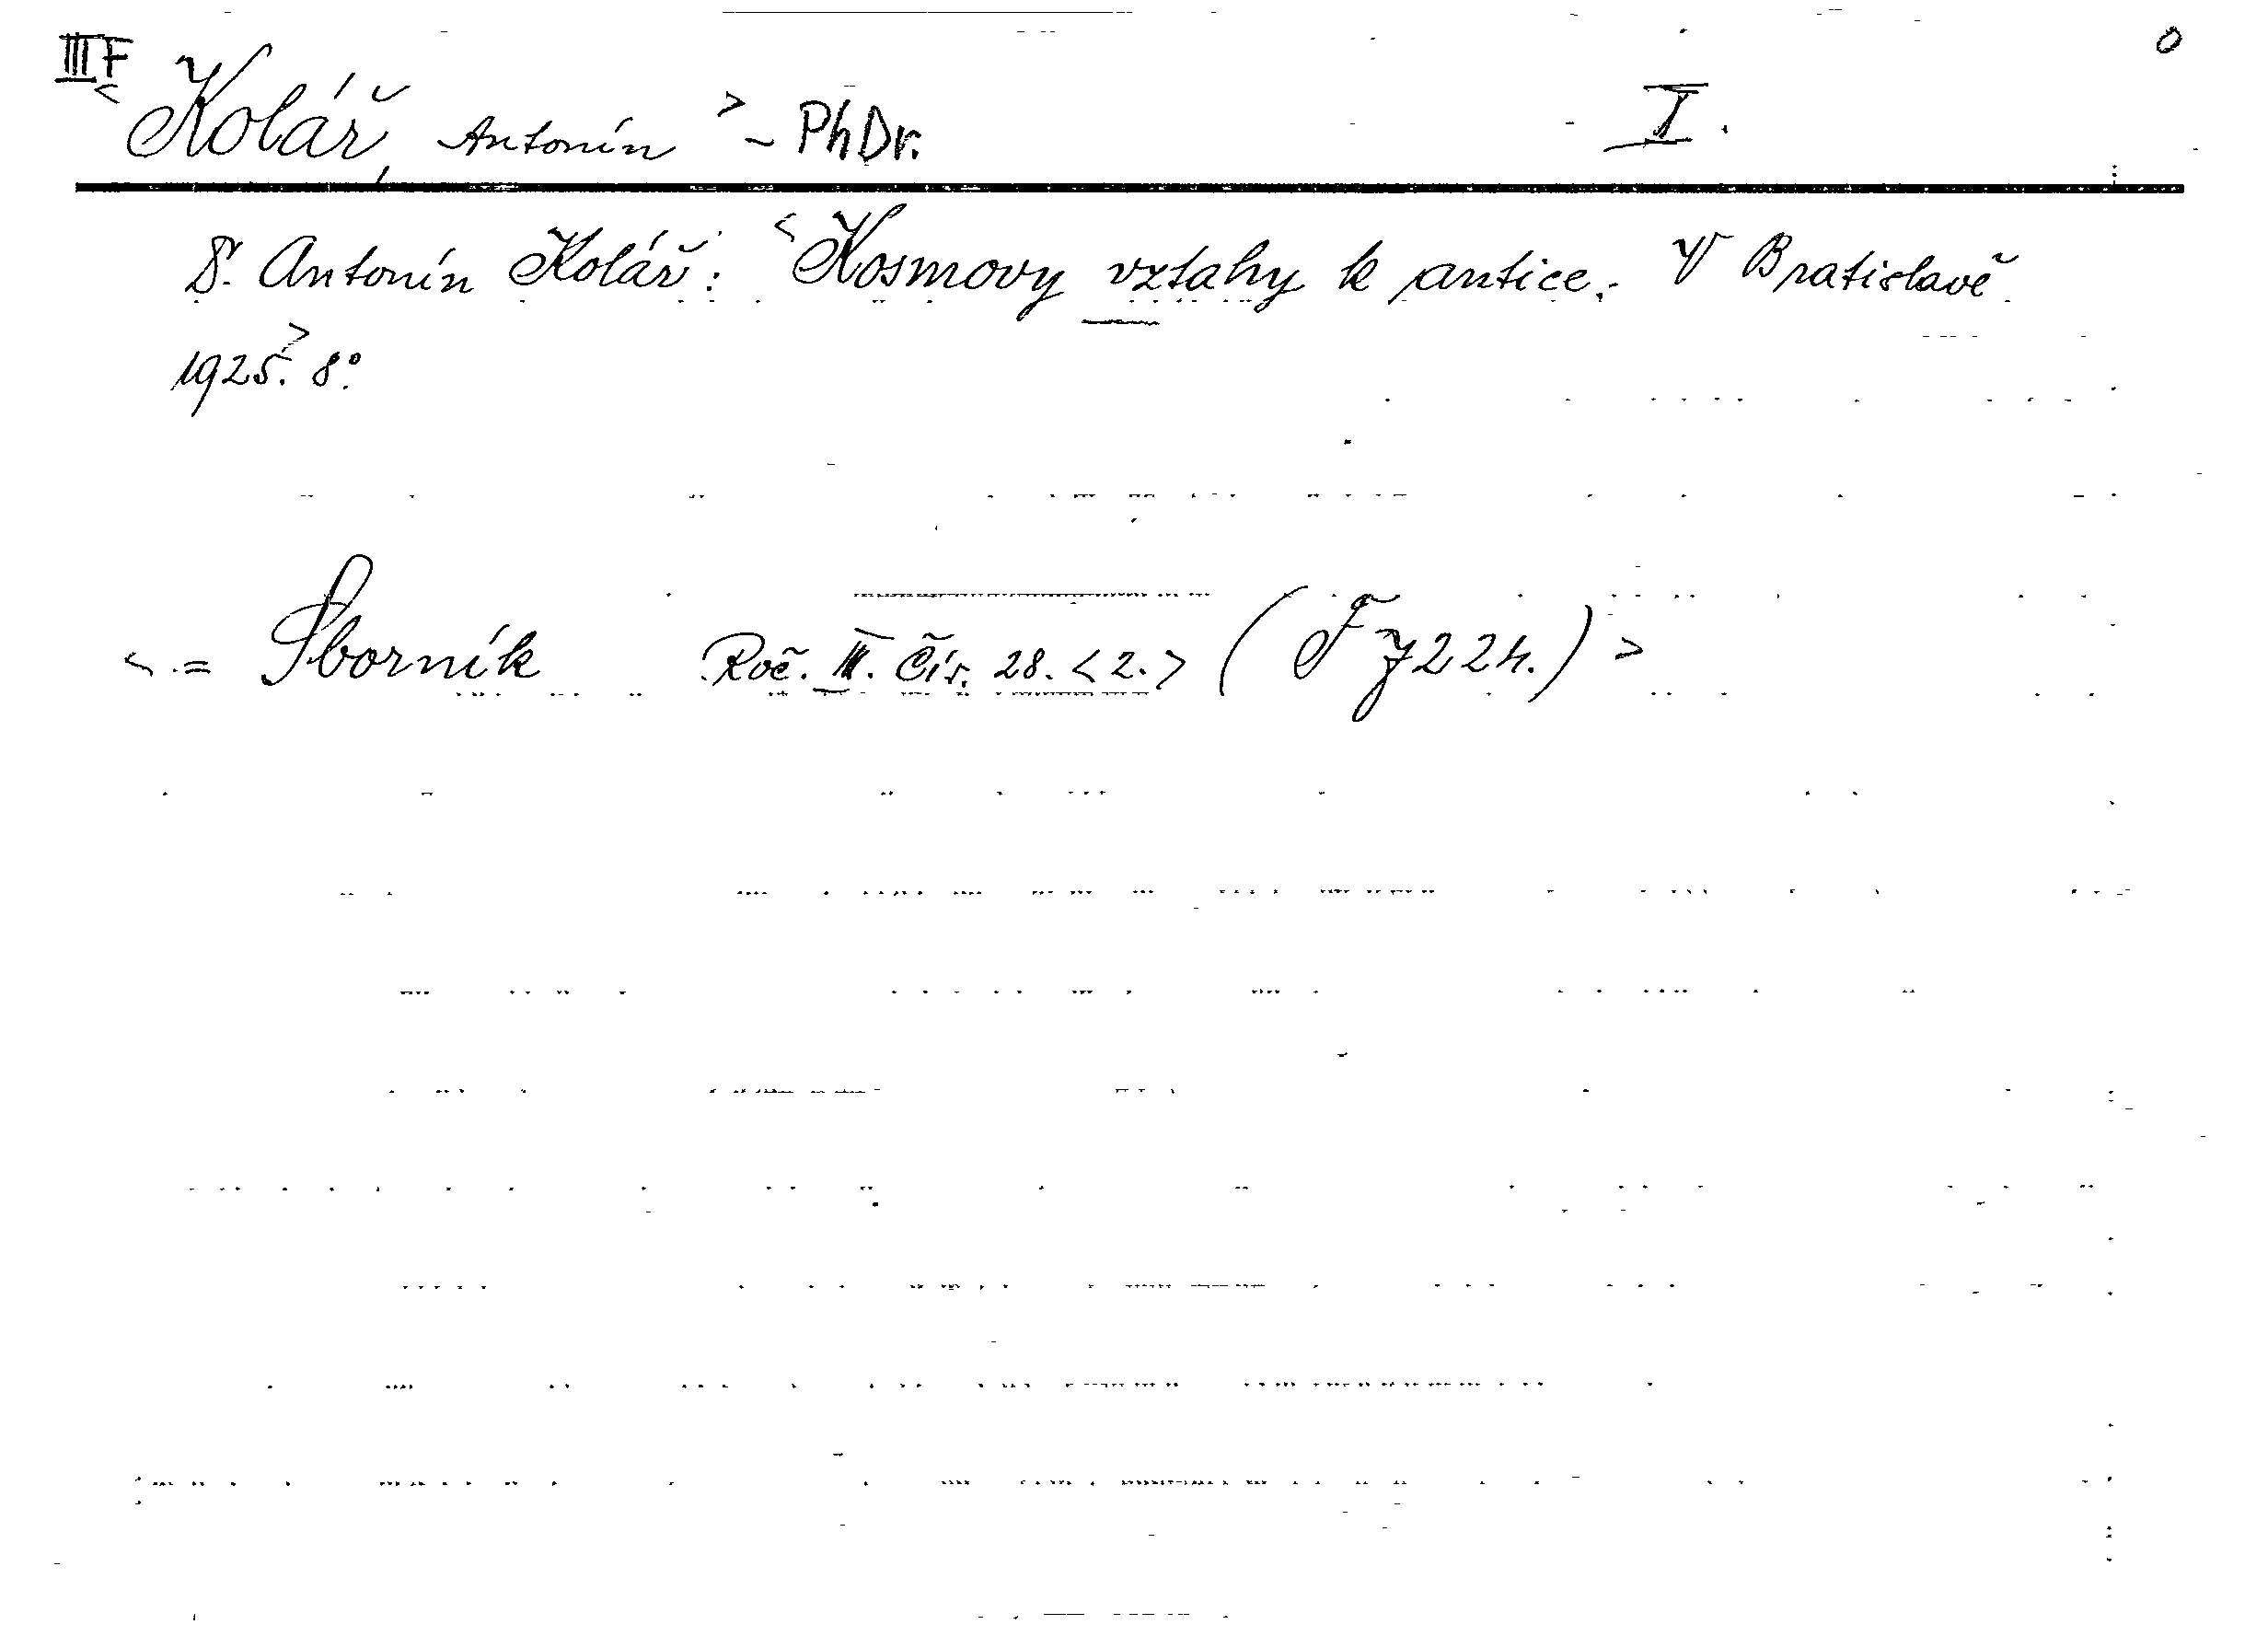 III F
O
< Kolář, Antonín > - PhDr. I.
Dr. Antonín Kolář: < Kosmovy vztahy k antice. V Bratislavě
1925. > 8°.
< = Sborník Roč. III. Čís. 28. < 2. > (F 7224.) >